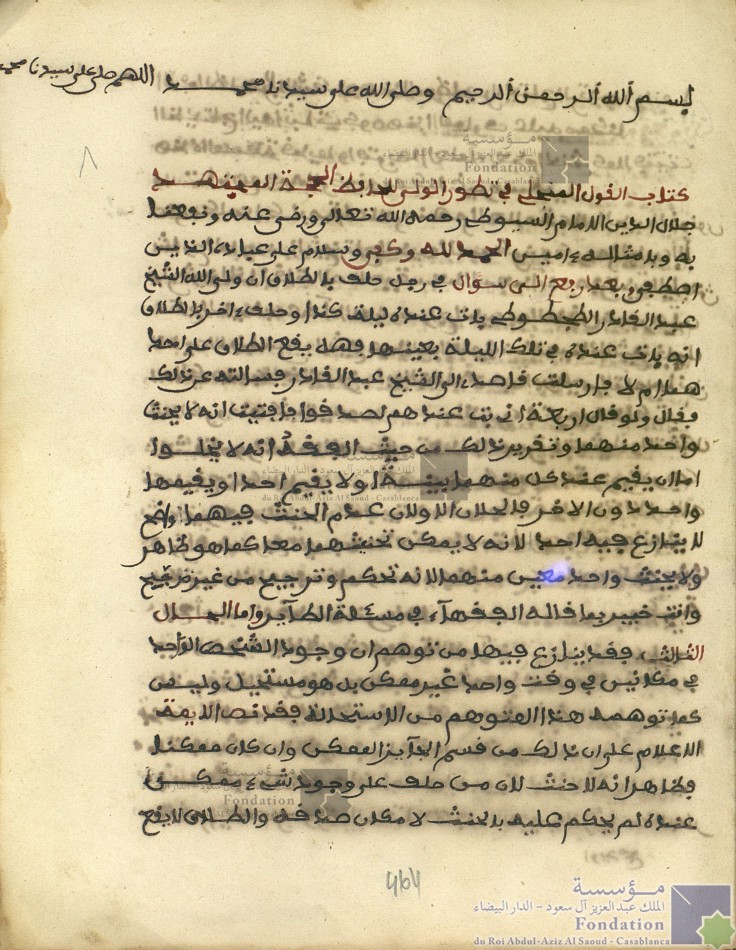 اللهم صلى على سيدنا محمد
بسم الله الرحمن الرحيم وصلى الله على سيدنا محمد
٨
كتاب القول المنجلي في تطور الولي للحافظ الحجة الفقيه
جلال الدين الامام السيوطي رحمه الله تعالى ورضي عنه ونفعنا
به وبامثاله ءامين الحمد لله وكفى وسلام على عباده الذين
اصطفى وبعد رفع الي سؤال في رجل حلف بالطلاق ان ولي الله الشيخ
عبد القادر الطجطوطي بات عنده ليلة كذا وحلف ءاخر بالطلاق
انه بات عنده في تلك الليلة بعينها فهل يقع الطلاق على احد
هما ام لا فارسلت قاصدا الى الشيخ عبد القادر فسالته عن ذلك
فقال ولو قال اربعة اني بت عندهم لصدقوا فافتيت انه لا يحنث
واحد منهما وتقرير ذلك من حيث الفقه انه لا يخلوا
اما ان يقيم عند كل منهما بينة او لا يقيم احد او يقيمها
واحد دون الاخر فالحالان الاولان عدم الحنث فيهما واضح
لا ينازع فيه احد لانه لا يمكن تحنيثهما معا كما هو ظاهر
ولا يحنث واحد معين منهما لانه تحكم وترجيح من غير ترجيح
وانت خبير بما قاله الفقهآء في مسئلة الطآير واما الحال
الثالث فقد ينازع فيها من توهم ان وجود الشخص الواحد
في مكانين في وقت واحد غير ممكن بل هو مستحيل وليس
كما توهمه هذا المتوهم من الاستحالة فقد نص الايمة
الاعلام على ان ذلك من قسم الجآيز الممكن وان كان ممكنا
فظاهر انه لا حنث لان من حلف على وجود شيء ممكن
عنده لم يحكم عليه بالحنث لامكان صدقه والطلاق لا يقع
464
مؤسسة
الملك عبد العزيز آل سعود - الدار البيضاء
Fondation
du Roi Abdul-Aziz Al Saoud - Casablanca